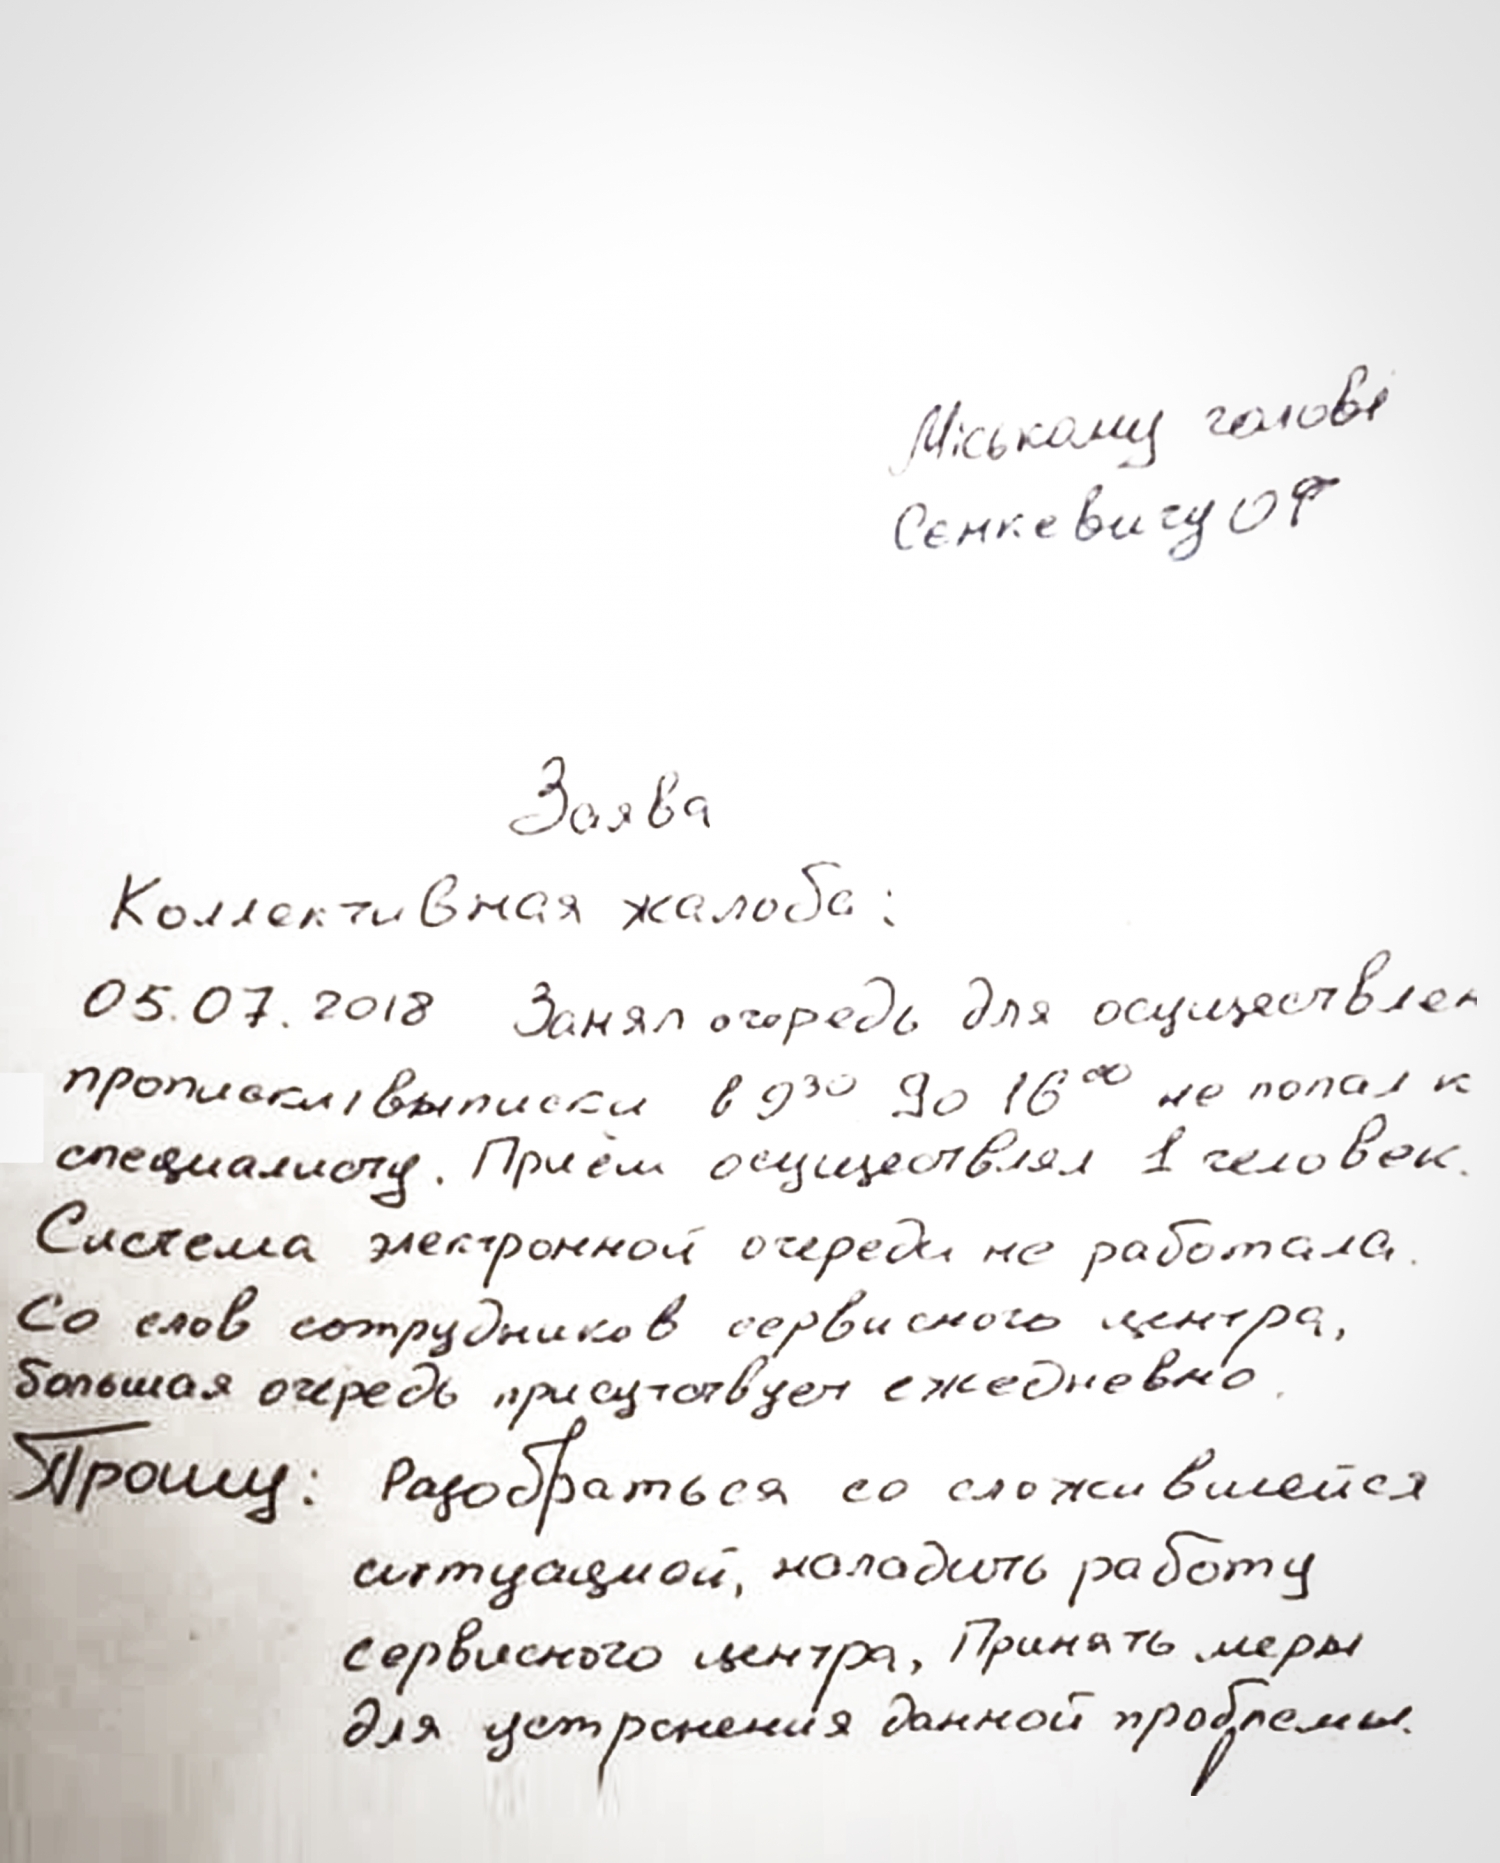 Міському голові
Сєнкевичу ОФ
Заява
Коллективная жалоба:
05.07.2018 Занял очередь для осуществлен
прописки/выписки в 9³⁰ до 16⁰⁰ не попал к
специалисту. Приём осуществлял 1 человек.
Система электронной очереди не работала.
Со слов сотрудников сервисного центра,
большая очередь присутствует ежедневно.
Прошу: Разобраться со сложившейся
ситуацией, наладить работу
сервисного центра, Принять меры
для устронения данной проблемы.